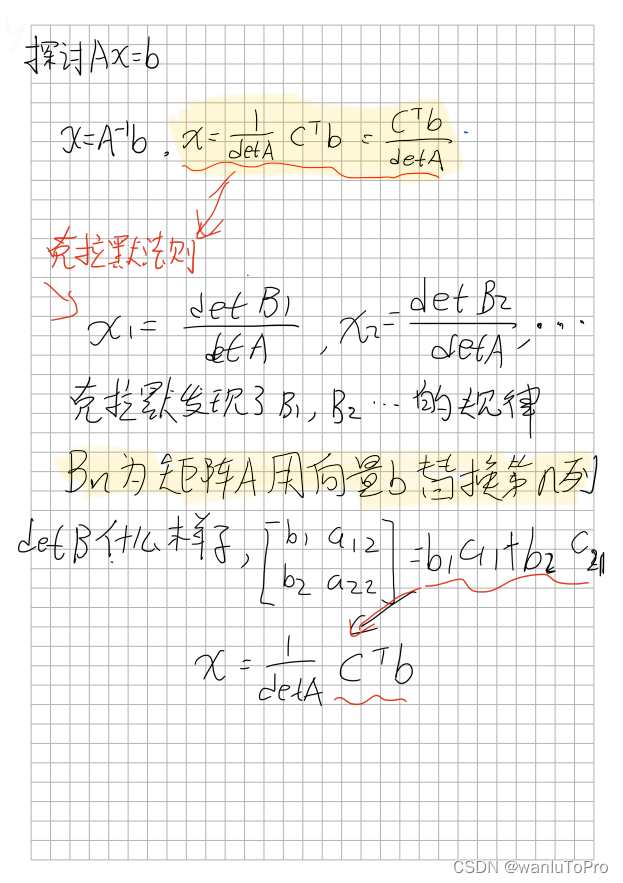 探讨Ax=b
x=A⁻¹b, x=1/detA Cᵀb = Cᵀb/detA
克拉默法则
x₁= det B₁/det A , x₂= det B₂/det A , ···
克拉默发现了B₁, B₂ ··· 的规律
Bn为矩阵A用向量b替换第n列
det B什么样子, [b₁ a₁₂ b₂ a₂₂] =b₁C₁₁+b₂ C₂₁
x = 1/detA Cᵀb
CSDN @wanluToPro